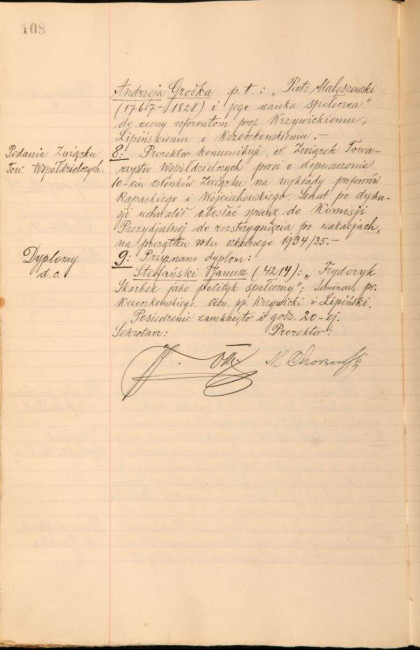 108
Andrzeja Grodka p.t.: „Piotr Maleszewski
(1767-1828) i jego nauka społeczna"
do oceny referentom prof. Krzywickiemu,
Lipińskiemu i Krzeczkowskiemu.—
Podanie Związku
Tow. Współdzielczych.
8: Prorektor komunikuje, iż Związek Towa-
rzystw Współdzielczych prosi o dopuszczenie
10-ciu członków Związku na wykłady profesorów
Rapackiego i Wojciechowskiego. Senat po dysku-
sji uchwalił odesłać sprawę do Komisji
Prezydjalnej do rozstrzygnięcia po wakacjach,
na początku roku szkolnego 1934/35.—
Dyplomy
d.c.
9: Przyznano dyplom:
Stefański Janusz (4214): „Fryderyk
Skarbek jako polityk społeczny"; Seminar. pr.
Krzeczkowskiego. Ocen. pp. Krzywicki i Lipiński.
Posiedzenie zamknięto o godz. 20-ej.
Sekretarz: Prorektor: